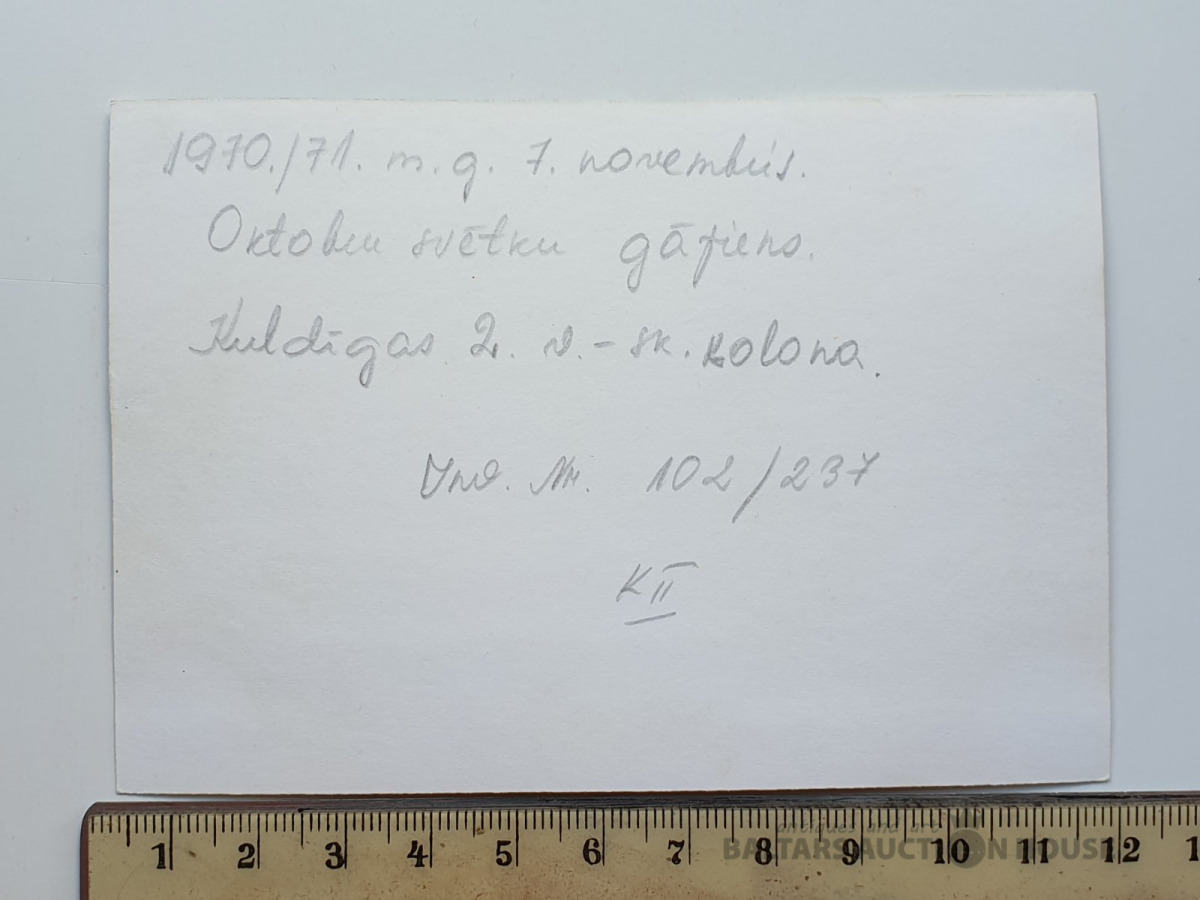 1970./71. m.g. 7. novembris.
Oktobra svētku gājiens.
Kuldīgas 2. v.-sk. kolona.
Inv. Nr. 102/237
K II
1 2 3 4 5 6 7 8 9 10 11 12 1
antiques and art
BALTARS AUCTION HOUSE